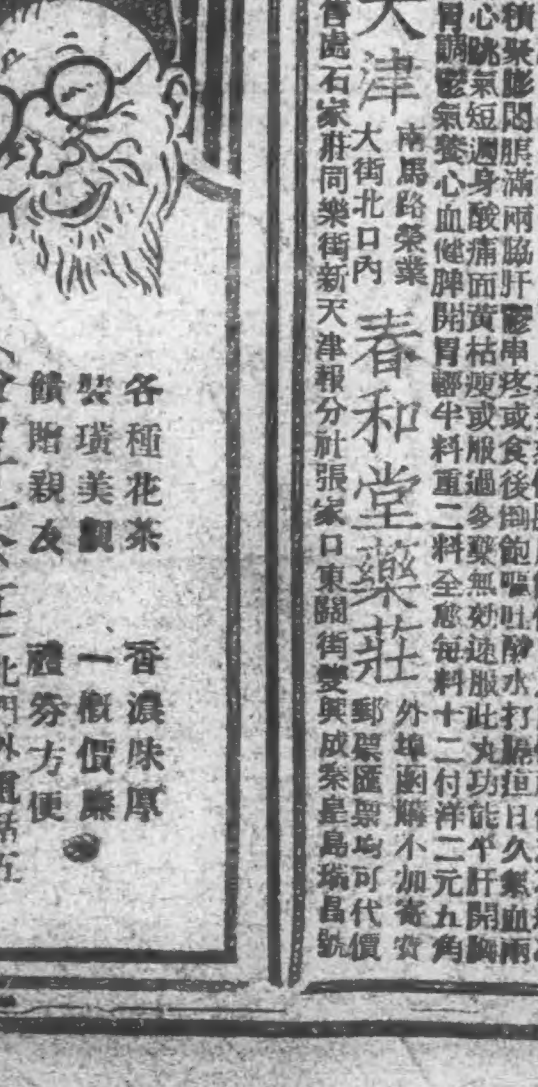 積聚膨悶脹滿兩脇肝鬱串疼或食後悶飽嘔吐酸水打膈疸日久無血兩
心跳氣短週身酸痛面黃枯瘦或服過多藥無効速服此丸功能平肝開胸
胃調鬱氣養心血健脾開胃輕半料重二料全愈每料十二付洋二元五角
天津
南馬路榮業
大街北口內
春和堂藥莊
外埠函購不加寄費
郵票匯票均可代價
售處石家莊同樂街新天津報分社張家口東關街雙興成秦皇島瑞昌號
各種花茶 香濃味厚
裝璜美觀 一概價廉
饋贈親友 禮券方便
北門外電話五